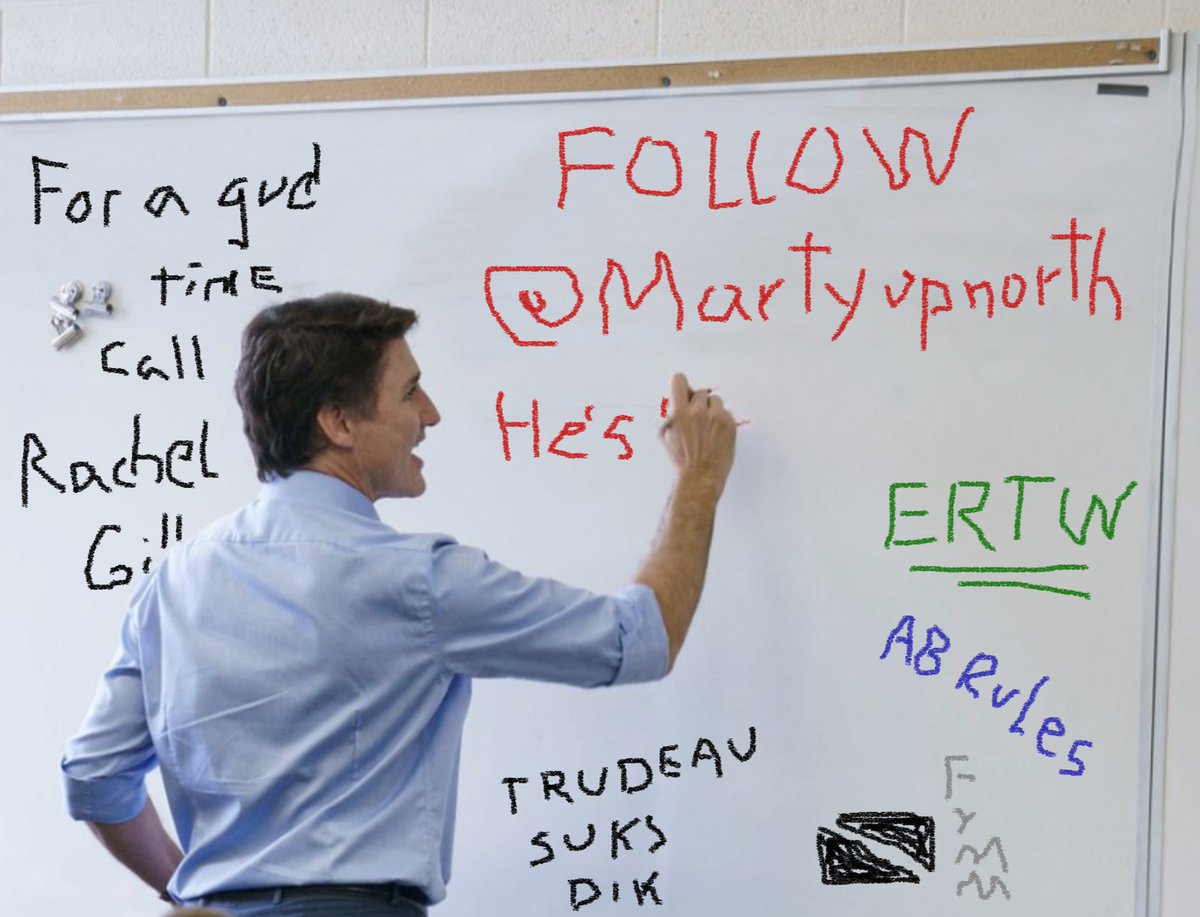 For a gud
time
call
Rachel
Gill
FOLLOW
@Martyupnorth
He's
ERTW
AB Rules
TRUDEAU
SUKS
DIK
F
Y
M
M